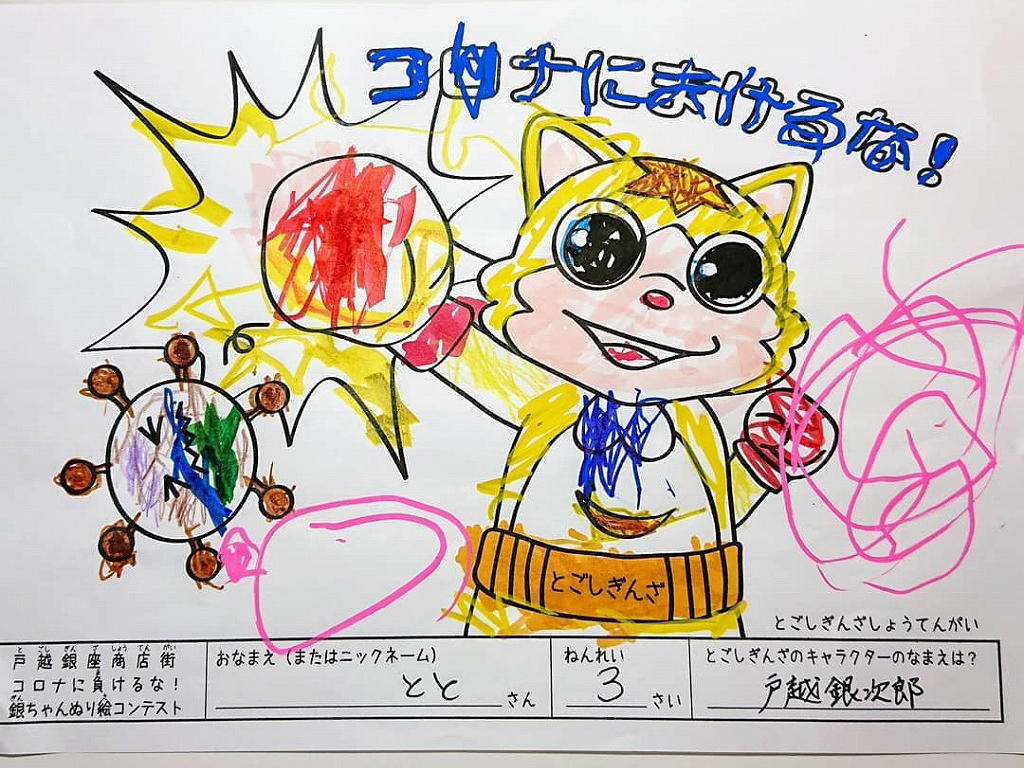 コロナにまけるな!
とごしぎんざ
とごしぎんざしょうてんがい
戸越銀座商店街
コロナに負けるな!
銀ちゃんぬり絵コンテスト
おなまえ(またはニックネーム)
とと さん
ねんれい
3 さい
とごしぎんざのキャラクターのなまえは?
戸越銀次郎